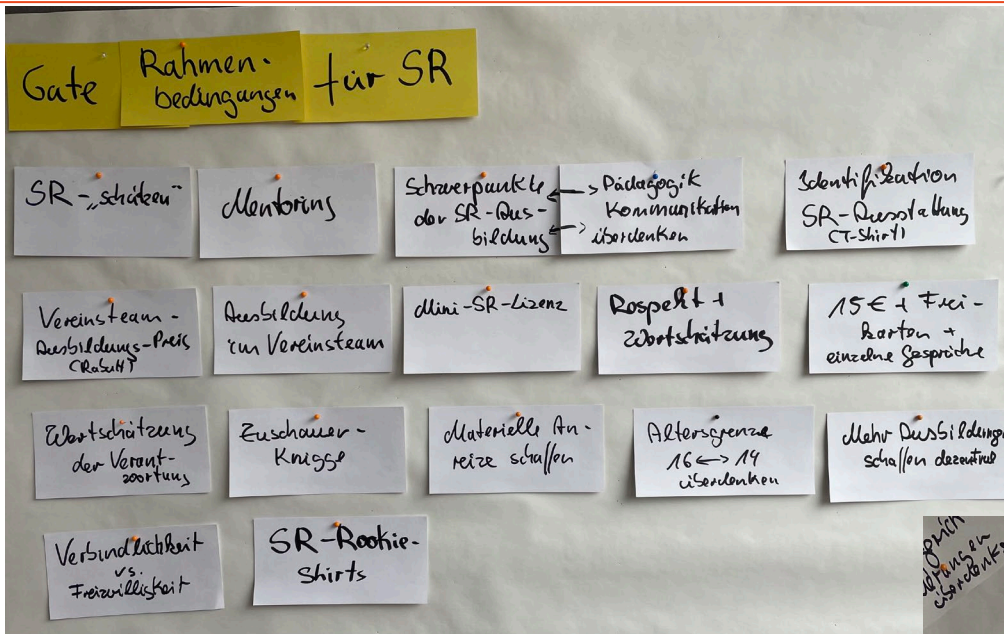 Gute
Rahmen-
bedingungen
für SR
SR-„schätzen"
Mentoring
Schwerpunkte
der SR-Aus-
bildung
Pädagogik
Kommunikation
überdenken
Identifikation
SR-Ausstattung
(T-Shirt)
Vereinsteam-
Ausbildungs-Preis
(Rabatt)
Ausbildung
im Vereinsteam
Mini-SR-Lizenz
Respekt +
Wertschätzung
15 € + Frei-
karten +
einzelne Gespräche
Wertschätzung
der Verant-
wortung
Zuschauer-
Knigge
Materielle An-
reize schaffen
Altersgrenze
16 <-> 14
überdenken
Mehr Ausbildungen
schaffen dezentral
Verbindlichkeit
vs.
Freiwilligkeit
SR-Rookie-
Shirts